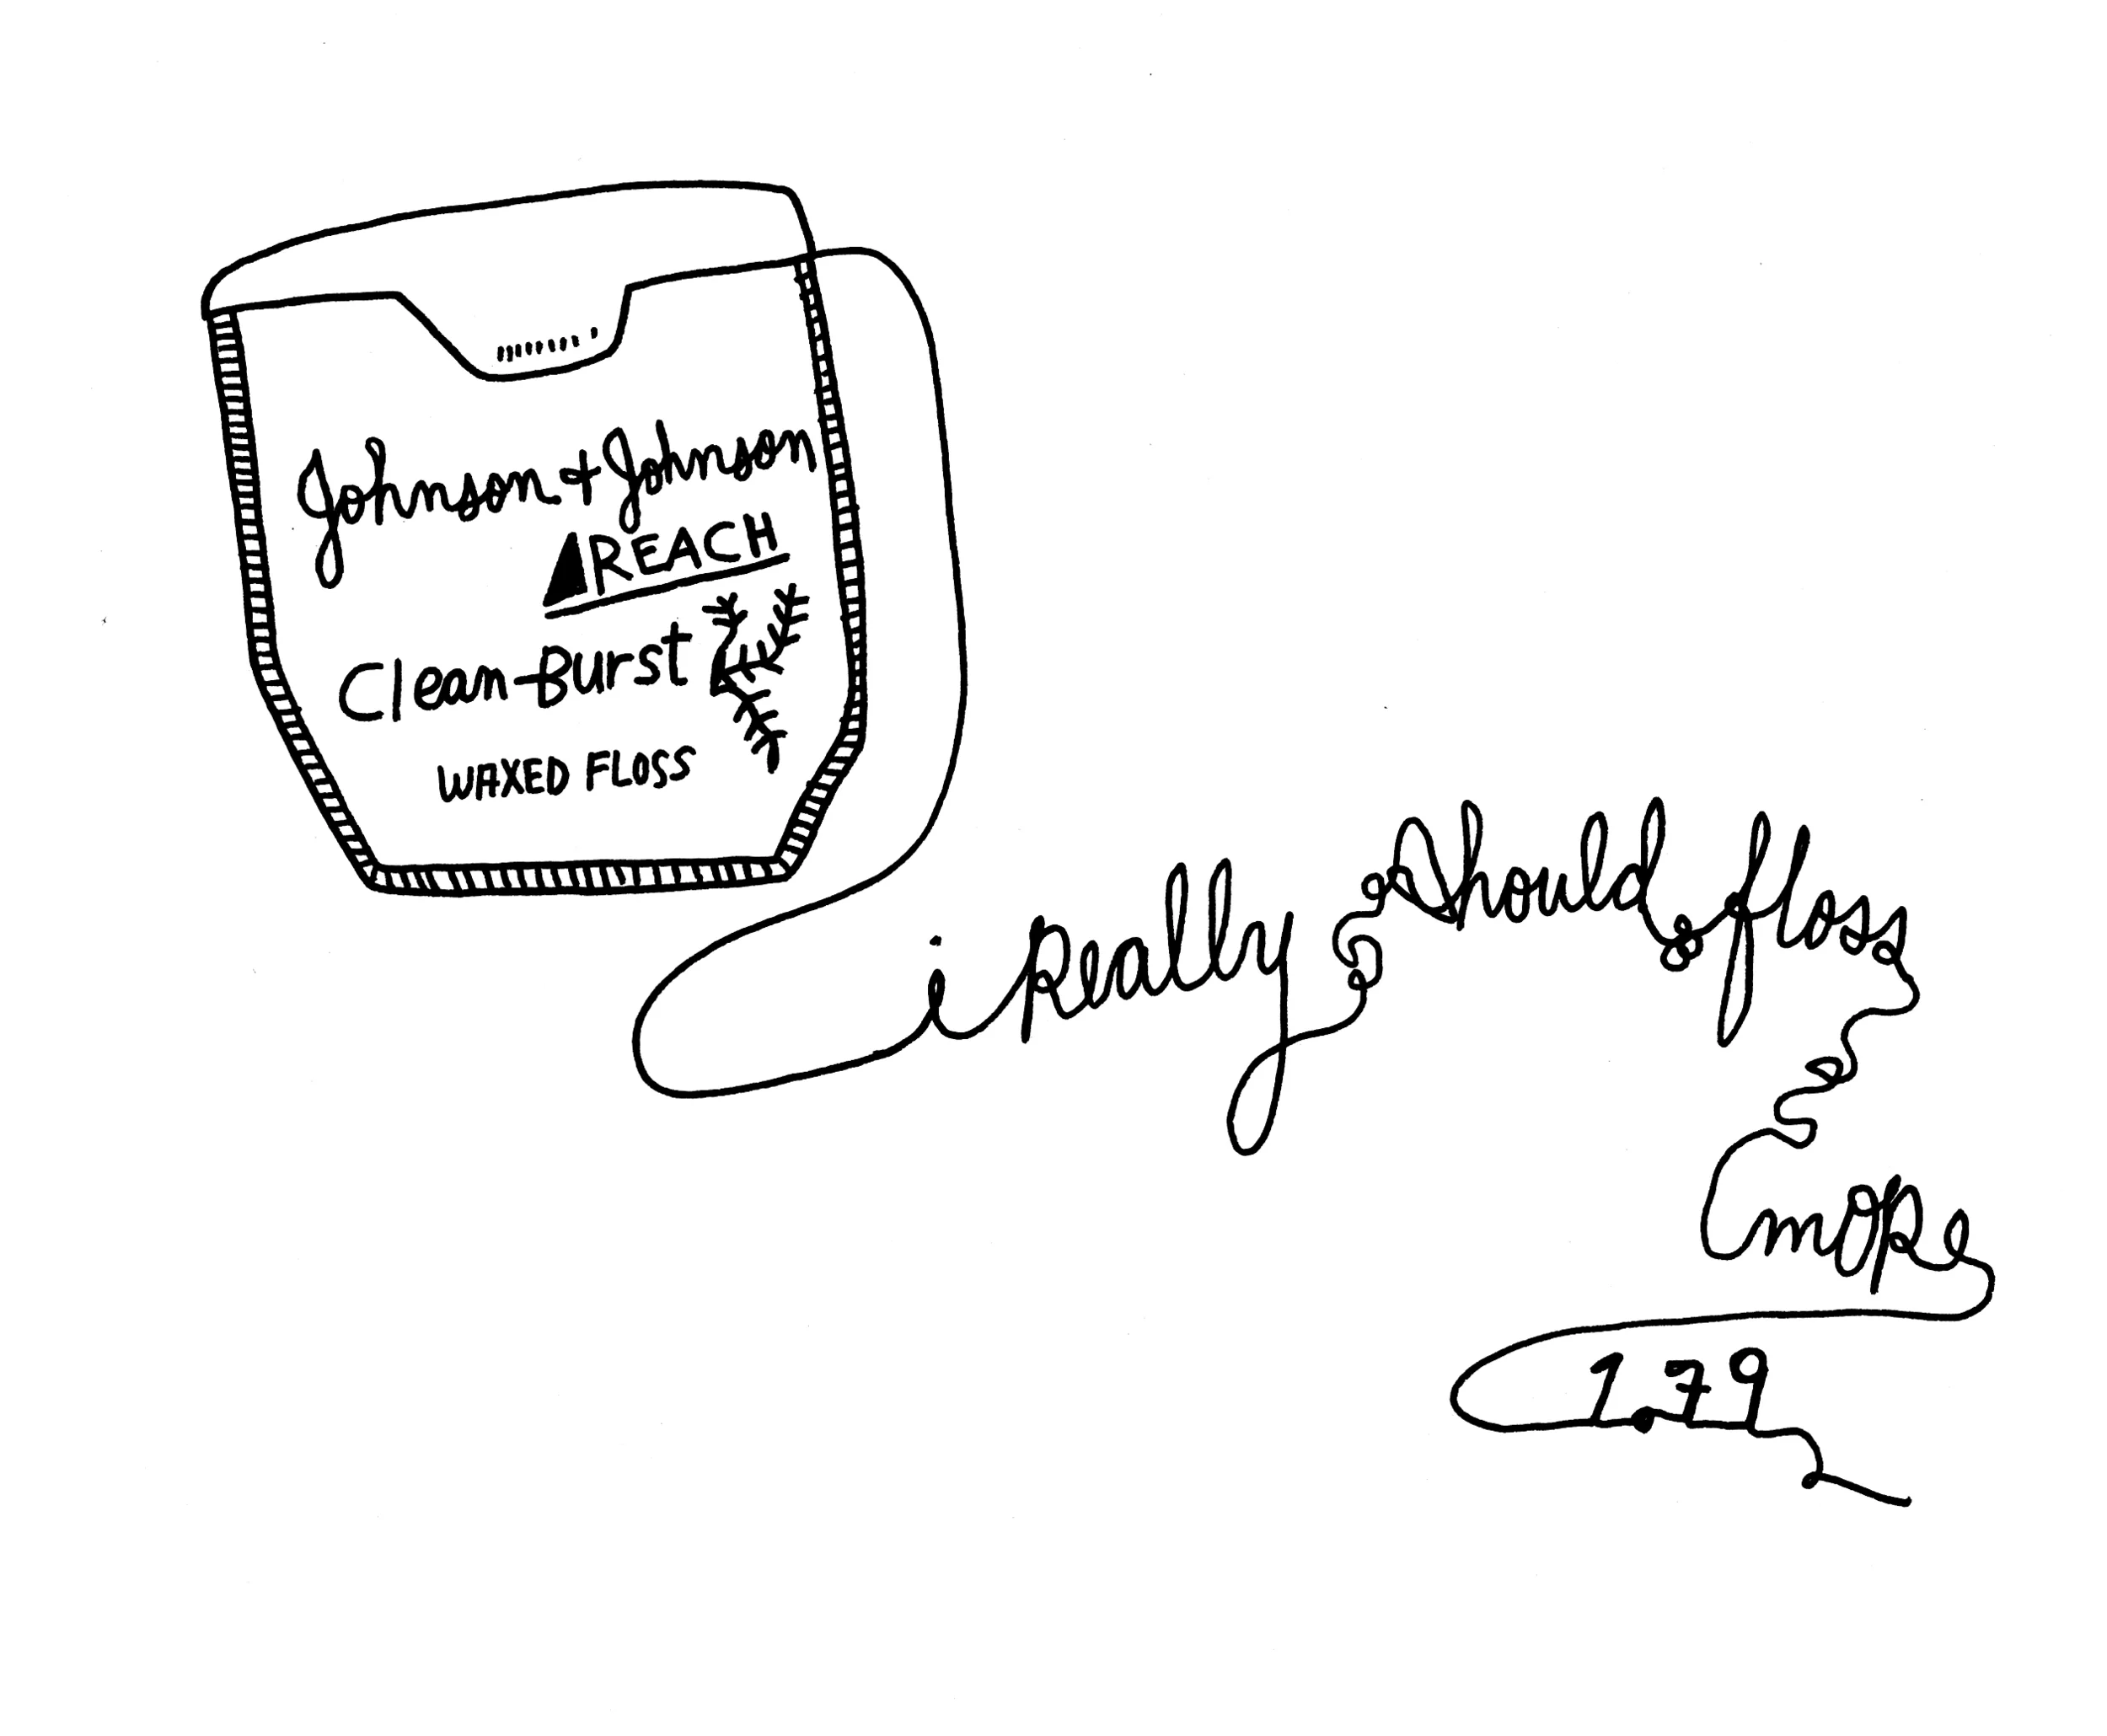 Johnson + Johnson
REACH
Clean-Burst
WAXED FLOSS
i Really should floss
moRe
1.79